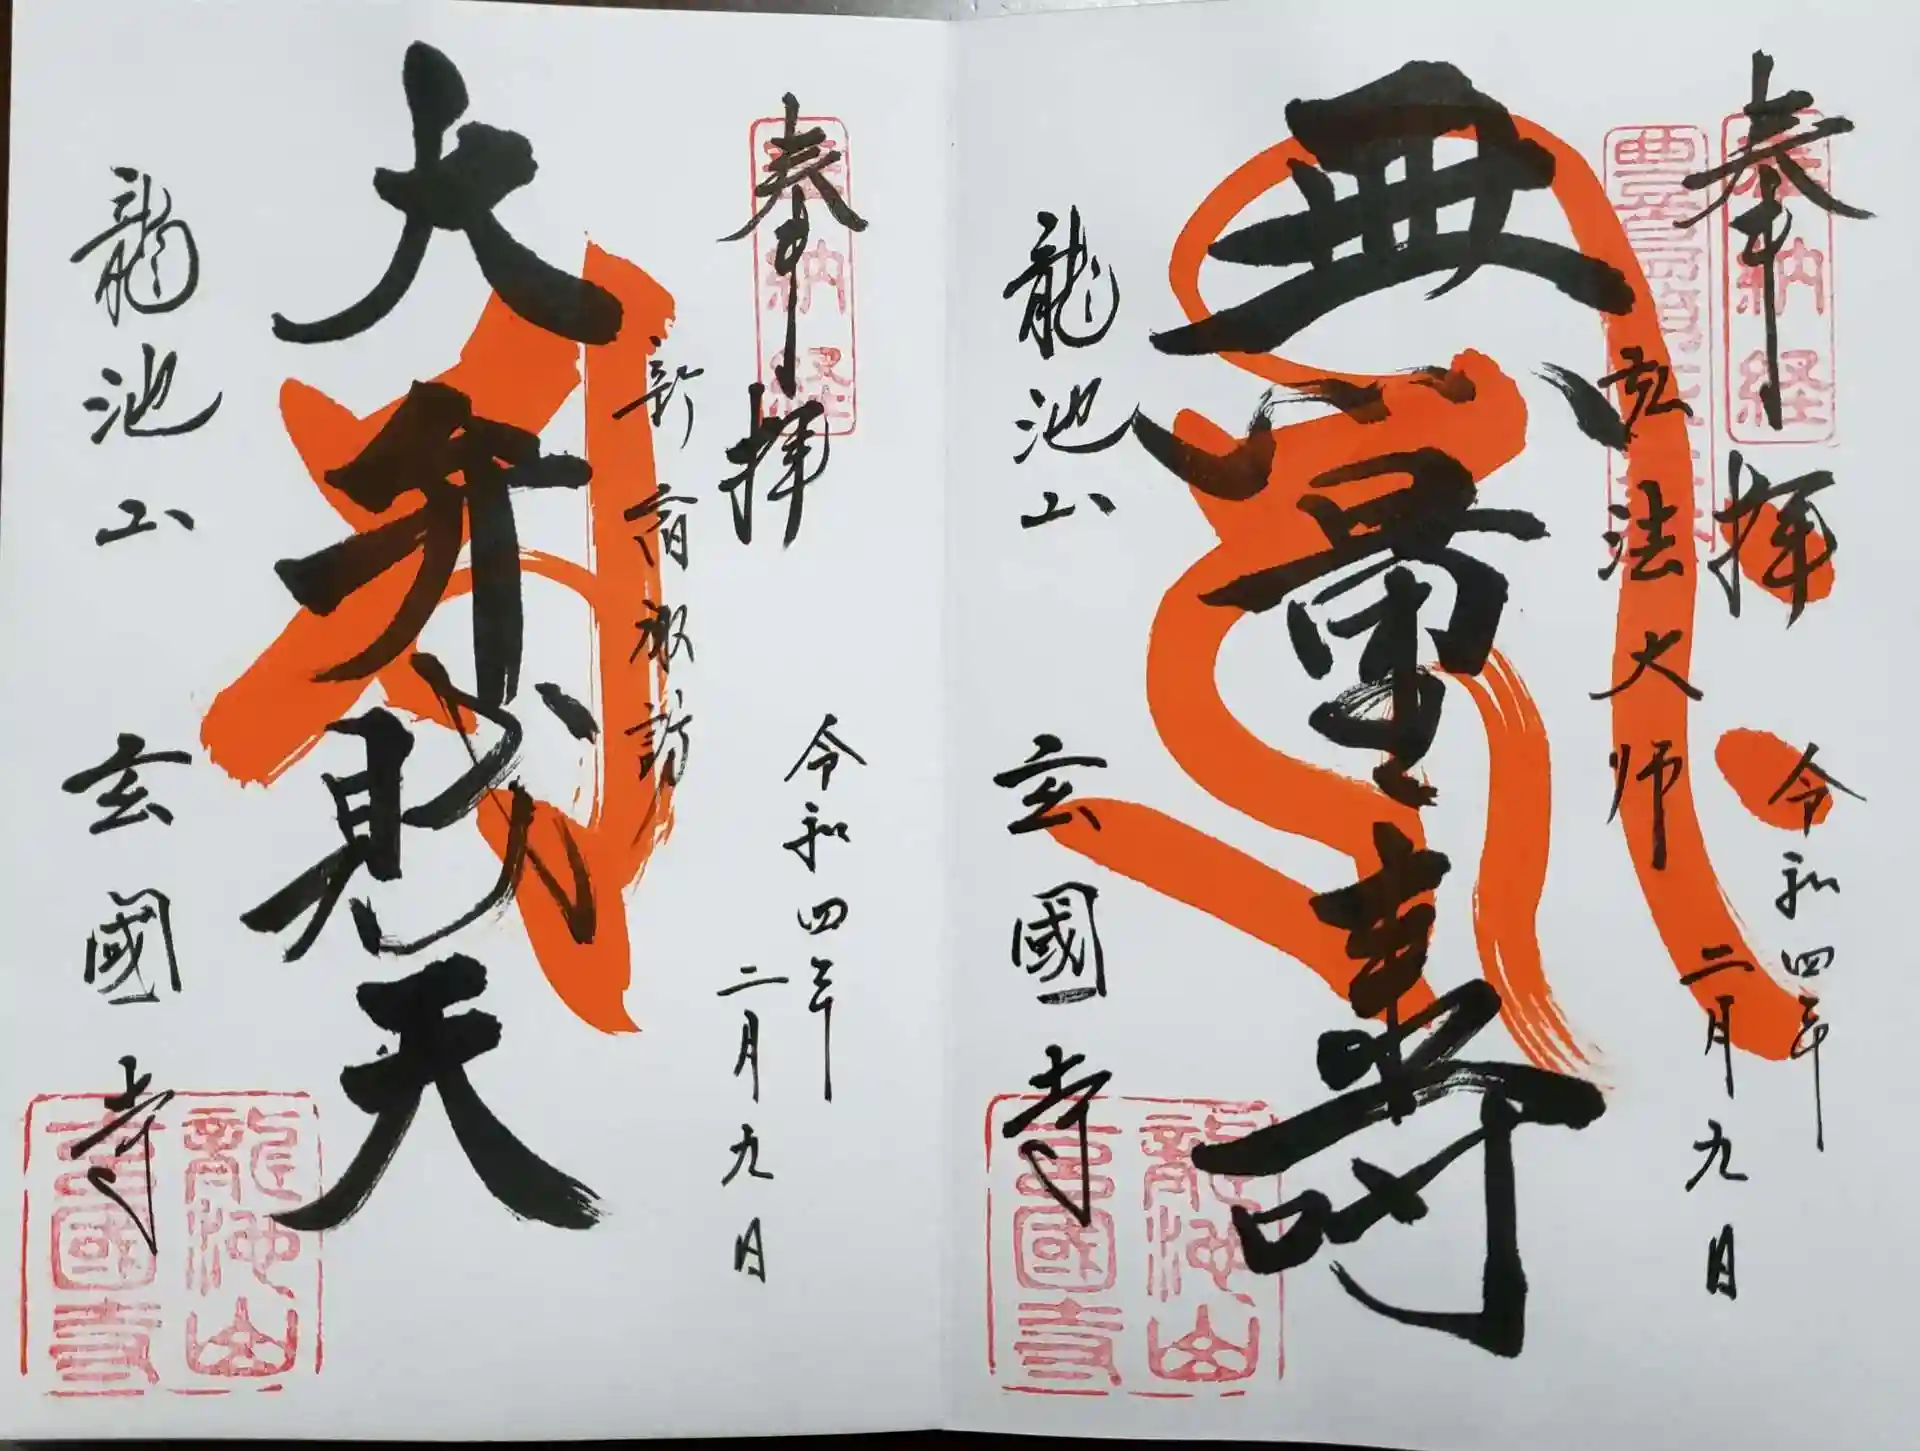 奉拝
奉納経
令和四年
二月九日
弘法大師
無量壽
龍池山 玄國寺
龍池山
玄國寺
奉拝
奉納経
令和四年
二月九日
新宿諏訪
大弁財天
龍池山 玄國寺
龍池山
玄國寺